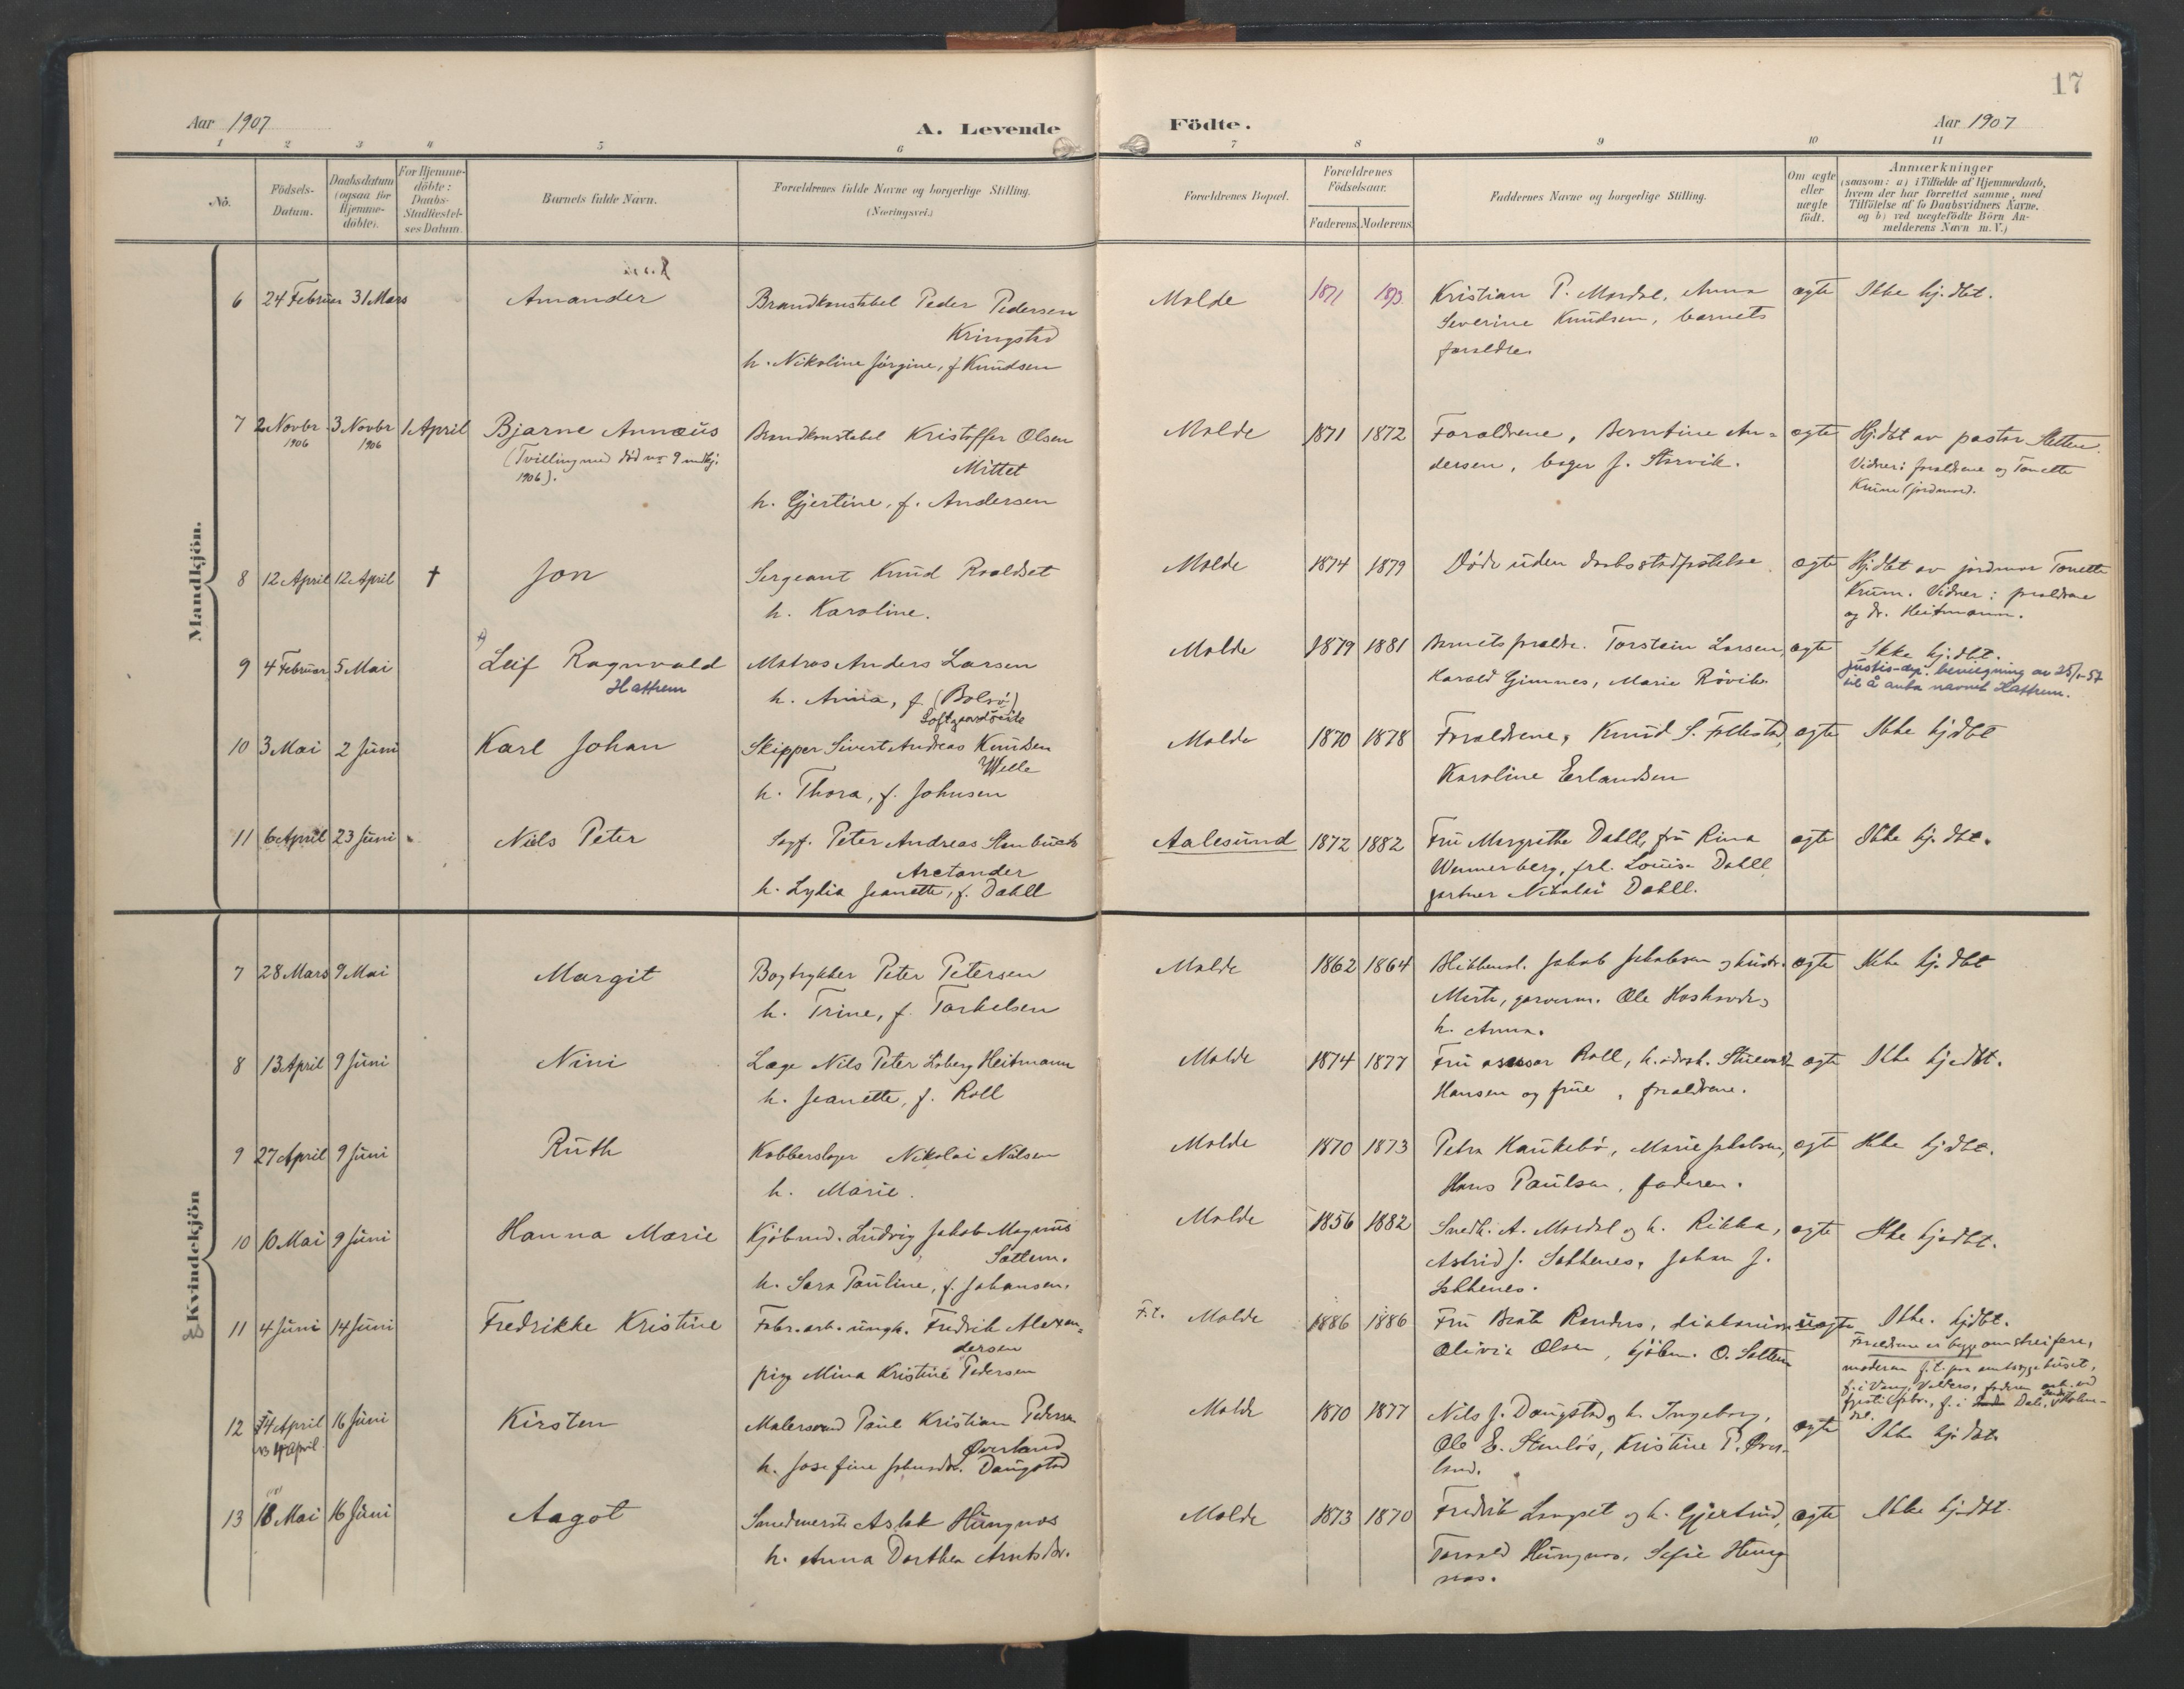 17
Aar 1907
A. Levende
Födte.
Aar 1907
1 2 3 4 5 6 7 8 9 10 11
Nö.
Födsels-
Datum.
Daabsdatum
(ogsaa för
Hjemme-
döbte).
For Hjemme-
döbte:
Daabs-
Stadfæstel-
ses Datum.
Barnets fulde Navn.
Forældrenes fulde Navne og borgerlige Stilling.
(Næringsvei.)
Forældrenes Bopæl.
Forældrenes
Födselsaar.
Faderens. Moderens.
Faddernes Navne og borgerlige Stilling.
Om ægte
eller
uægte
födt.
Anmærkninger
(saasom: a) i Tilfælde af Hjemmedaab,
hvem der har forrettet samme, med
Tilföielse af to Daabsvidners Navne,
og b) ved uægtefödte Börn An-
melderens Navn m. V.)
Mandkjön.
6 24 Februar 31 Mars Amander
Brandkonstabel Peder Pedersen
Kringstad
h. Nikoline Jörgine, f Knudsen
Molde 1871 1873
Kristian P. Mordal, Anna
Severine Knudsen, barnets
foraldre.
ægte Ikke hj.dbt.
7 2 Novbr 1906 3 Novbr 1906 1 April Bjarne Annæus
(Tvilling med död nr 9 mdkj.
1906).
Brandkonstabel Kristoffer Olsen
Mittet
h. Gjertine, f. Andersen
Molde 1871 1872
Foraldrene, Berntine An-
dersen, bager J. Storvik.
ægte Hjdbt av pastor Sletten.
Vidner: foraldrene og Tonette
Krum (jordmor).
8 12 April 12 April † Jon
Sergeant Knud Roaldset
h. Karoline.
Molde 1874 1879
Döde uden daabsstadfæstelse.
ægte Hjdbt av jordmor Tonette
Krum. Vidner: foraldrene
og dr. Heitmann.
9 4 Februar 5 Mai Leif Ragnvald
Hattrem
Matros Anders Larsen
h. Anna, f. (Bolsö)
Molde 1879 1881
Barnets foraldre. Torstein Larsen,
Harald Gimnes, Marie Rövik.
ægte Ikke hj.dbt.
Justis-dep. bevilgning av
til å anta navnet Hattrem.
10 3 Mai 2 Juni Karl Johan
Skipper Sivert Andreas Knudsen
Welle
h. Thora, f. Johnsen
Molde 1870 1878
Foraldrene, Knud S. Follestad,
Karoline Erlandsen
ægte Ikke hjdbt
11 6 April 23 Juni Niels Peter
Sagf. Peter Andreas Stenbuch
Arctander
h. Lydia Jeanette, f. Dahll
Aalesund 1872 1882
Fru Margrethe Dahll, fru Rina
Wennerberg, frk. Louise Dahll
gartner Nikolai Dahll.
ægte Ikke hj.dbt.
Kvindekjön
7 28 Mars 9 Mai Margit
Bogtrykker Peter Petersen
h. Trine, f. Torkelsen
Molde 1862 1864
Blikkensl. Jakob Jakobsen og hustr.
Marte, garverm. Ole Hoskvode,
h. Anna.
ægte Ikke hj.dbt
8 13 April 9 Juni Nini
Læge Nils Peter Loberg Heitmann
h. Jeanette, f. Roll
Molde 1874 1877
Fru assessor Roll,
Hansen og frue, foraldrene.
ægte Ikke hjedbt.
9 27 April 9 Juni Ruth
Kobberslager Nikolai Nilsen
h. Marie.
Molde 1870 1873
Petra Haukebö, Marie Jakobsen,
Hans Paulsen, faderen.
ægte Ikke hjdbt.
10 10 Mai 9 Juni Hanna Marie
Kjöbmd. Ludvig Jakob Magnus
Sættem.
h. Sara Pauline, f. Johansen.
Molde 1856 1882
Snedk. A. Mordal og h. Rikka,
Astrid J. Solthenes, Johan J.
Solthenes.
ægte Ikke hjedbt.
11 4 Juni 14 Juni Fredrikke Kristine
Fabr.arb. ungk. Fredrik Alexan-
dersen
pige Mina Kristine Pedersen
F.t. Molde 1886 1886
Fru Beate Randers, diakonisse
Olivia Olsen, kjöbm. O. Sættem
uægte Ikke. hjdbt.
Foraldrene er begge omstreifere,
moderen f.t. paa amtssygehuset,
12 14 April 16 Juni Kirsten
Malersvend Paul Kristian Pedersen
Øverland
h. Josefine Johnsdtr. Daugstad
Molde 1870 1877
Nils J. Daugstad og h. Ingeborg,
Ole E. Stenlös, Kristine P. Över-
land.
ægte Ikke hjdbt.
13 18 Mai 16 Juni Aagot
Smedmester Aslak Hungnes
h. Anna Dorthea Arntsdtr.
Molde 1873 1870
Fredrik Langset og h. Gjertrud,
Torvald Hungnes, Sefie Hung
nes.
ægte Ikke hjdbt.